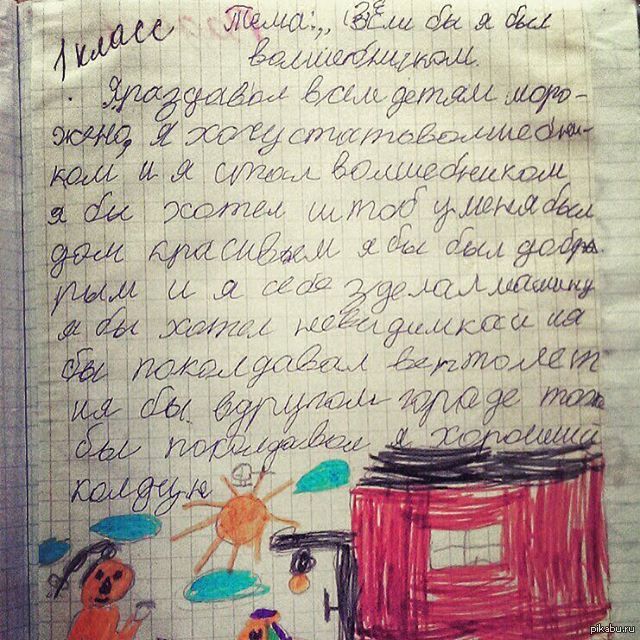 1 класс
Тема: „Если бы я был
волшебником.
Я раздавал всем детям моро-
жено, я хочу стать волшебни-
ком и я стал волшебником
я бы хотел штоб у меня был
дом красивым я бы был доб
рым и я себе зделал машину
я бы хотел невидимкой и я
бы поколдавал вертолет
и я бы в другом городе тоже
бы поколдавал я хороший
колдун
pikabu.ru